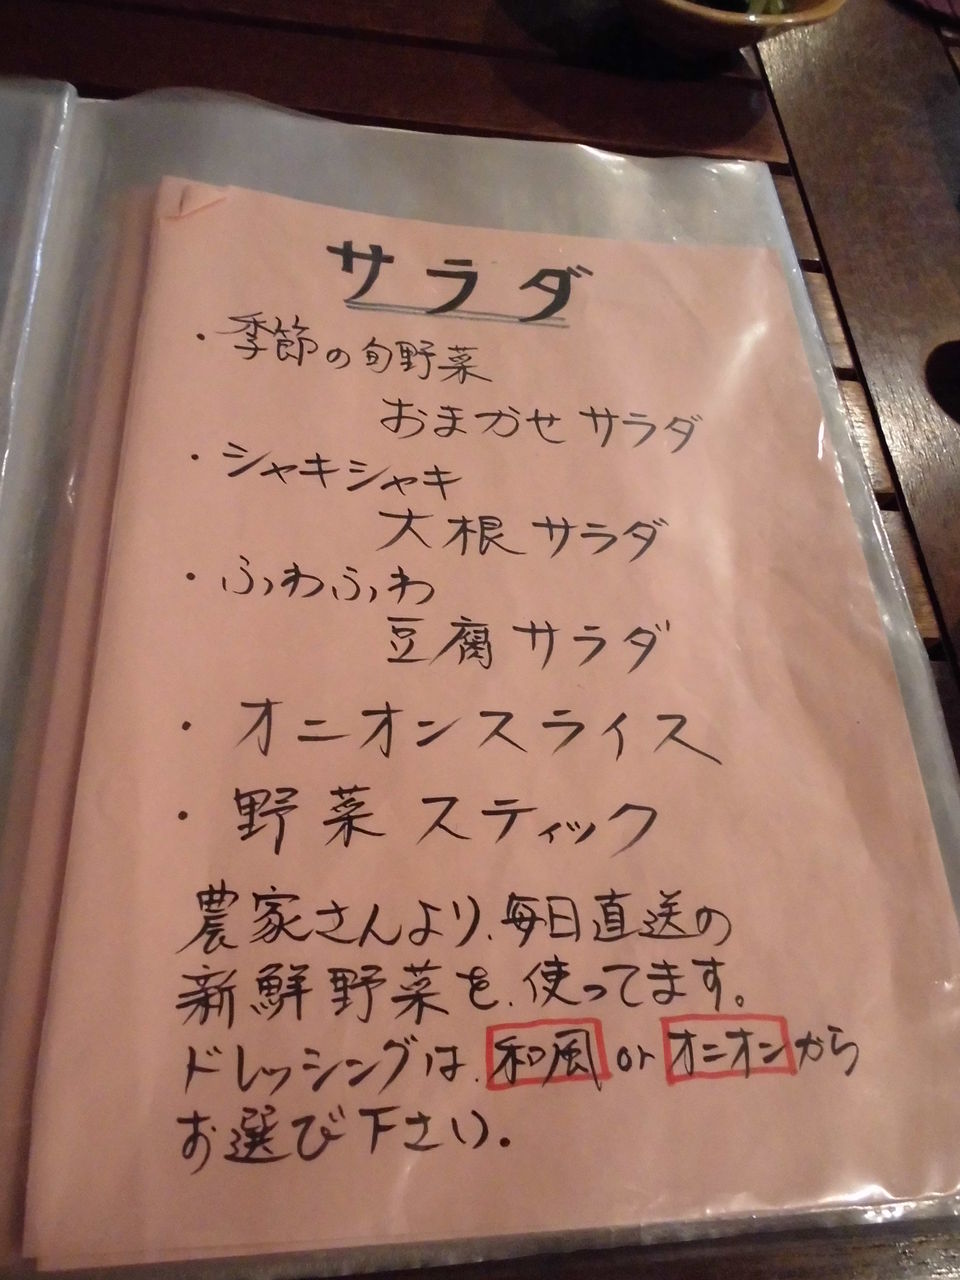 サラダ
・季節の旬野菜
おまかせサラダ
・シャキシャキ
大根サラダ
・ふわふわ
豆腐サラダ
・オニオンスライス
・野菜スティック
農家さんより、毎日直送の
新鮮野菜を、使ってます。
ドレッシングは、和風 or オニオンから
お選び下さい。